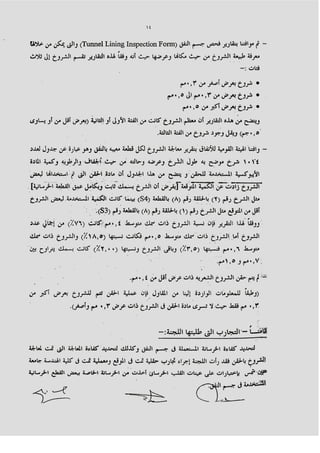 ١٤
- تم موافتنا بتقارير فحص جسم النفق (Tunnel Lining Inspection Form) والتى يمكن من خلالها
معرفة طبيعة الشروخ من حيث مكانها وعرضها حيث أنه وفقاً لهذه التقارير تنقسم الشروخ إلى ثلاث
فئات :-
• شروخ بعرض أصغر من ٠,٣مم
• شروخ بعرض من ٠,٣مم الى ٠,٥مم
• شروخ بعرض أكبر من ٠,٥مم
ويتضح من هذه التقارير أن معظم الشروخ كانت من الفئة الأولى أو الثانية (بعرض أقل من أو يساوى
٠,٥مم) ويقل وجود شروخ من الفئة الثالثة.
- وافتنا الهيئة القومية للأنفاق بتقرير معالجة الشروخ لكل قطعة معيبة بالنفق وهو عبارة عن جدول لعدد
١٠٢٤ شرخ موضح به طول الشرخ وعرضه وحالته من حيث الجفاف والرطوبه وكمية المادة
الأيبوكسية المستخدمة للحقن و يتضح من هذا الجدول أن مادة الحقن التى تم استخدامها لبعض
الشروخ زادت عن الكمية المتوقعة (بفرض أن الشرخ بسمك ثابت وبكامل عمق القطعة الخرسانية)
مثل الشرخ رقم (٢) بالحلقة رقم (٨) بالقطعة (S4) بينما كانت الكمية المستخدمة لبعض الشروخ
أقل من المتوقع مثل الشرخ رقم (١) بالحلقة رقم (٨) بالقطعة رقم (S3).
وفقاً لهذا التقرير فإن نسبة الشروخ ذات سمك متوسط ٠,٤مم كانت (٧٦٪) من إجمالى عدد
الشروخ أما الشروخ ذات سمك متوسط ٠,٥مم فكانت نسبتها (١٨,٥٪) والشروخ ذات سمك
متوسط ٠,٦مم فنسبتها (٣,٥٪) وباقى الشروخ ونسبتها (٢,٠٠٪) كانت بسمك يتراوح بين
٠,٧مم و ١,٥مم.
تم يتم حقن الشروخ الشعرية ذات عرض أقل من ٠,٤مم.
(وطبقاً للمعلومات الواردة إلينا من المقاول فإن عملية الحقن تتم للشروخ بعرض أكبر من
٠,٣مم فقط حيث لا تسرى مادة الحقن فى الشروخ ذات عرض ٠,٣مم وأصغر).
- التجارب التى طلبتها اللجنة:-
لتحديد كفاءة الخرسانة المستعملة فى جسم النفق وكذلك لتحديد كفاءة المعالجة التى تمت لمعالجة
الشروخ بالحقن فقد رأت اللجنة إجراء تجارب حقلية تمت فى الموقع ومعملية تمت فى كلية الهندسة جامعة
عين شمس بإختبارات على عينات القلب الخرسانى أخذت من الخرسانة الخاصة ببعض القطع الخرسانية
المستخدمة فى جسم النفق